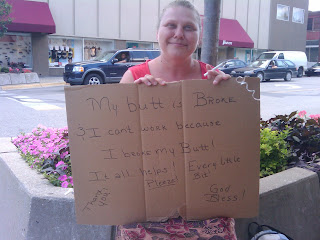 My butt is BROKE
& I cant work because
I broke My Butt!
It all helps
Please!
Every little
bit!
Thank
you!
God
Bless!